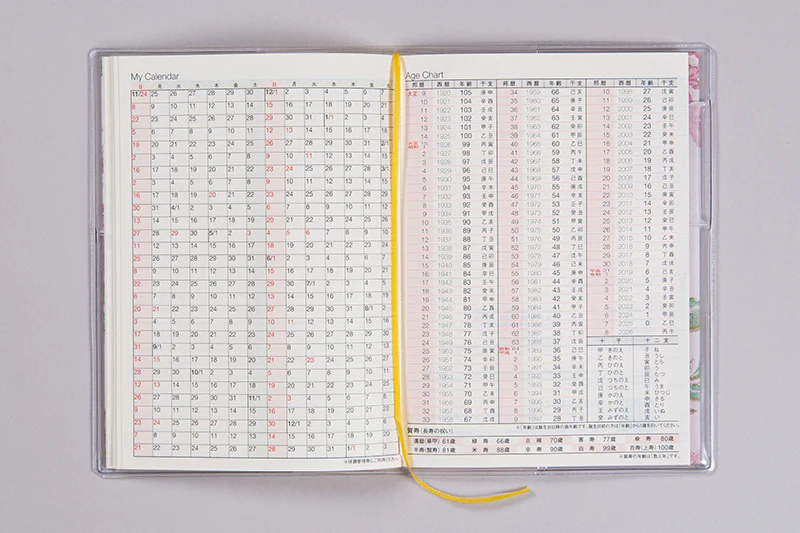 My Calendar
日 月 火 水 木 金 土 日 月 火 水 木 金 土
11/24 25 26 27 28 29 30 12/1 2 3 4 5 6 7
8 9 10 11 12 13 14 15 16 17 18 19 20 21
22 23 24 25 26 27 28 29 30 31 1/1 2 3 4
5 6 7 8 9 10 11 12 13 14 15 16 17 18
19 20 21 22 23 24 25 26 27 28 29 30 31 2/1
2 3 4 5 6 7 8 9 10 11 12 13 14 15
16 17 18 19 20 21 22 23 24 25 26 27 28 3/1
2 3 4 5 6 7 8 9 10 11 12 13 14 15
16 17 18 19 20 21 22 23 24 25 26 27 28 29
30 31 4/1 2 3 4 5 6 7 8 9 10 11 12
13 14 15 16 17 18 19 20 21 22 23 24 25 26
27 28 29 30 5/1 2 3 4 5 6 7 8 9 10
11 12 13 14 15 16 17 18 19 20 21 22 23 24
25 26 27 28 29 30 31 6/1 2 3 4 5 6 7
8 9 10 11 12 13 14 15 16 17 18 19 20 21
22 23 24 25 26 27 28 29 30 7/1 2 3 4 5
6 7 8 9 10 11 12 13 14 15 16 17 18 19
20 21 22 23 24 25 26 27 28 29 30 31 8/1 2
3 4 5 6 7 8 9 10 11 12 13 14 15 16
17 18 19 20 21 22 23 24 25 26 27 28 29 30
31 9/1 2 3 4 5 6 7 8 9 10 11 12 13
14 15 16 17 18 19 20 21 22 23 24 25 26 27
28 29 30 10/1 2 3 4 5 6 7 8 9 10 11
12 13 14 15 16 17 18 19 20 21 22 23 24 25
26 27 28 29 30 31 11/1 2 3 4 5 6 7 8
9 10 11 12 13 14 15 16 17 18 19 20 21 22
23 24 25 26 27 28 29 30 12/1 2 3 4 5 6
7 8 9 10 11 12 13 14 15 16 17 18 19 20
21 22 23 24 25 26 27 28 29 30 31 1/1 2 3
※体調管理等にご利用ください。
Age Chart
邦暦 西暦 年齢 干支
大正 9 1920 105 庚申
10 1921 104 辛酉
11 1922 103 壬戌
12 1923 102 癸亥
13 1924 101 甲子
14 1925 100 乙丑
大正 昭和 15 1926 99 丙寅
2 1927 98 丁卯
3 1928 97 戊辰
4 1929 96 己巳
5 1930 95 庚午
6 1931 94 辛未
7 1932 93 壬申
8 1933 92 癸酉
9 1934 91 甲戌
10 1935 90 乙亥
11 1936 89 丙子
12 1937 88 丁丑
13 1938 87 戊寅
14 1939 86 己卯
15 1940 85 庚辰
16 1941 84 辛巳
17 1942 83 壬午
18 1943 82 癸未
19 1944 81 甲申
20 1945 80 乙酉
21 1946 79 丙戌
22 1947 78 丁亥
23 1948 77 戊子
24 1949 76 己丑
25 1950 75 庚寅
26 1951 74 辛卯
27 1952 73 壬辰
28 1953 72 癸巳
29 1954 71 甲午
30 1955 70 乙未
31 1956 69 丙申
32 1957 68 丁酉
33 1958 67 戊戌
邦暦 西暦 年齢 干支
34 1959 66 己亥
35 1960 65 庚子
36 1961 64 辛丑
37 1962 63 壬寅
38 1963 62 癸卯
39 1964 61 甲辰
40 1965 60 乙巳
41 1966 59 丙午
42 1967 58 丁未
43 1968 57 戊申
44 1969 56 己酉
45 1970 55 庚戌
46 1971 54 辛亥
47 1972 53 壬子
48 1973 52 癸丑
49 1974 51 甲寅
50 1975 50 乙卯
51 1976 49 丙辰
52 1977 48 丁巳
53 1978 47 戊午
54 1979 46 己未
55 1980 45 庚申
56 1981 44 辛酉
57 1982 43 壬戌
58 1983 42 癸亥
59 1984 41 甲子
60 1985 40 乙丑
61 1986 39 丙寅
62 1987 38 丁卯
63 1988 37 戊辰
昭和 64 平成 1 1989 36 己巳
2 1990 35 庚午
3 1991 34 辛未
4 1992 33 壬申
5 1993 32 癸酉
6 1994 31 甲戌
7 1995 30 乙亥
8 1996 29 丙子
9 1997 28 丁丑
邦暦 西暦 年齢 干支
10 1998 27 戊寅
11 1999 26 己卯
12 2000 25 庚辰
13 2001 24 辛巳
14 2002 23 壬午
15 2003 22 癸未
16 2004 21 甲申
17 2005 20 乙酉
18 2006 19 丙戌
19 2007 18 丁亥
20 2008 17 戊子
21 2009 16 己丑
22 2010 15 庚寅
23 2011 14 辛卯
24 2012 13 壬辰
25 2013 12 癸巳
26 2014 11 甲午
27 2015 10 乙未
28 2016 9 丙申
29 2017 8 丁酉
30 2018 7 戊戌
平成 31 令和 1 2019 6 己亥
2 2020 5 庚子
3 2021 4 辛丑
4 2022 3 壬寅
5 2023 2 癸卯
6 2024 1 甲辰
7 2025 0 乙巳
8 2026 丙午
十干 十二支
甲 きのえ 子 ね
乙 きのと 丑 うし
丙 ひのえ 寅 とら
丁 ひのと 卯 う
戊 つちのえ 辰 たつ
己 つちのと 巳 み
庚 かのえ 午 うま
辛 かのと 未 ひつじ
壬 みずのえ 申 さる
癸 みずのと 酉 とり
戌 いぬ
亥 い
※「年齢」は誕生日以降の満年齢です。誕生日前の方は「年齢」から1歳を引いてください。
賀寿(長寿の祝い)
還暦(華甲) 61歳 緑寿 66歳 古稀 70歳 喜寿 77歳 傘寿 80歳
半寿(盤寿) 81歳 米寿 88歳 卒寿 90歳 白寿 99歳 百寿(上寿) 100歳
※賀寿の年齢は「数え年」です。